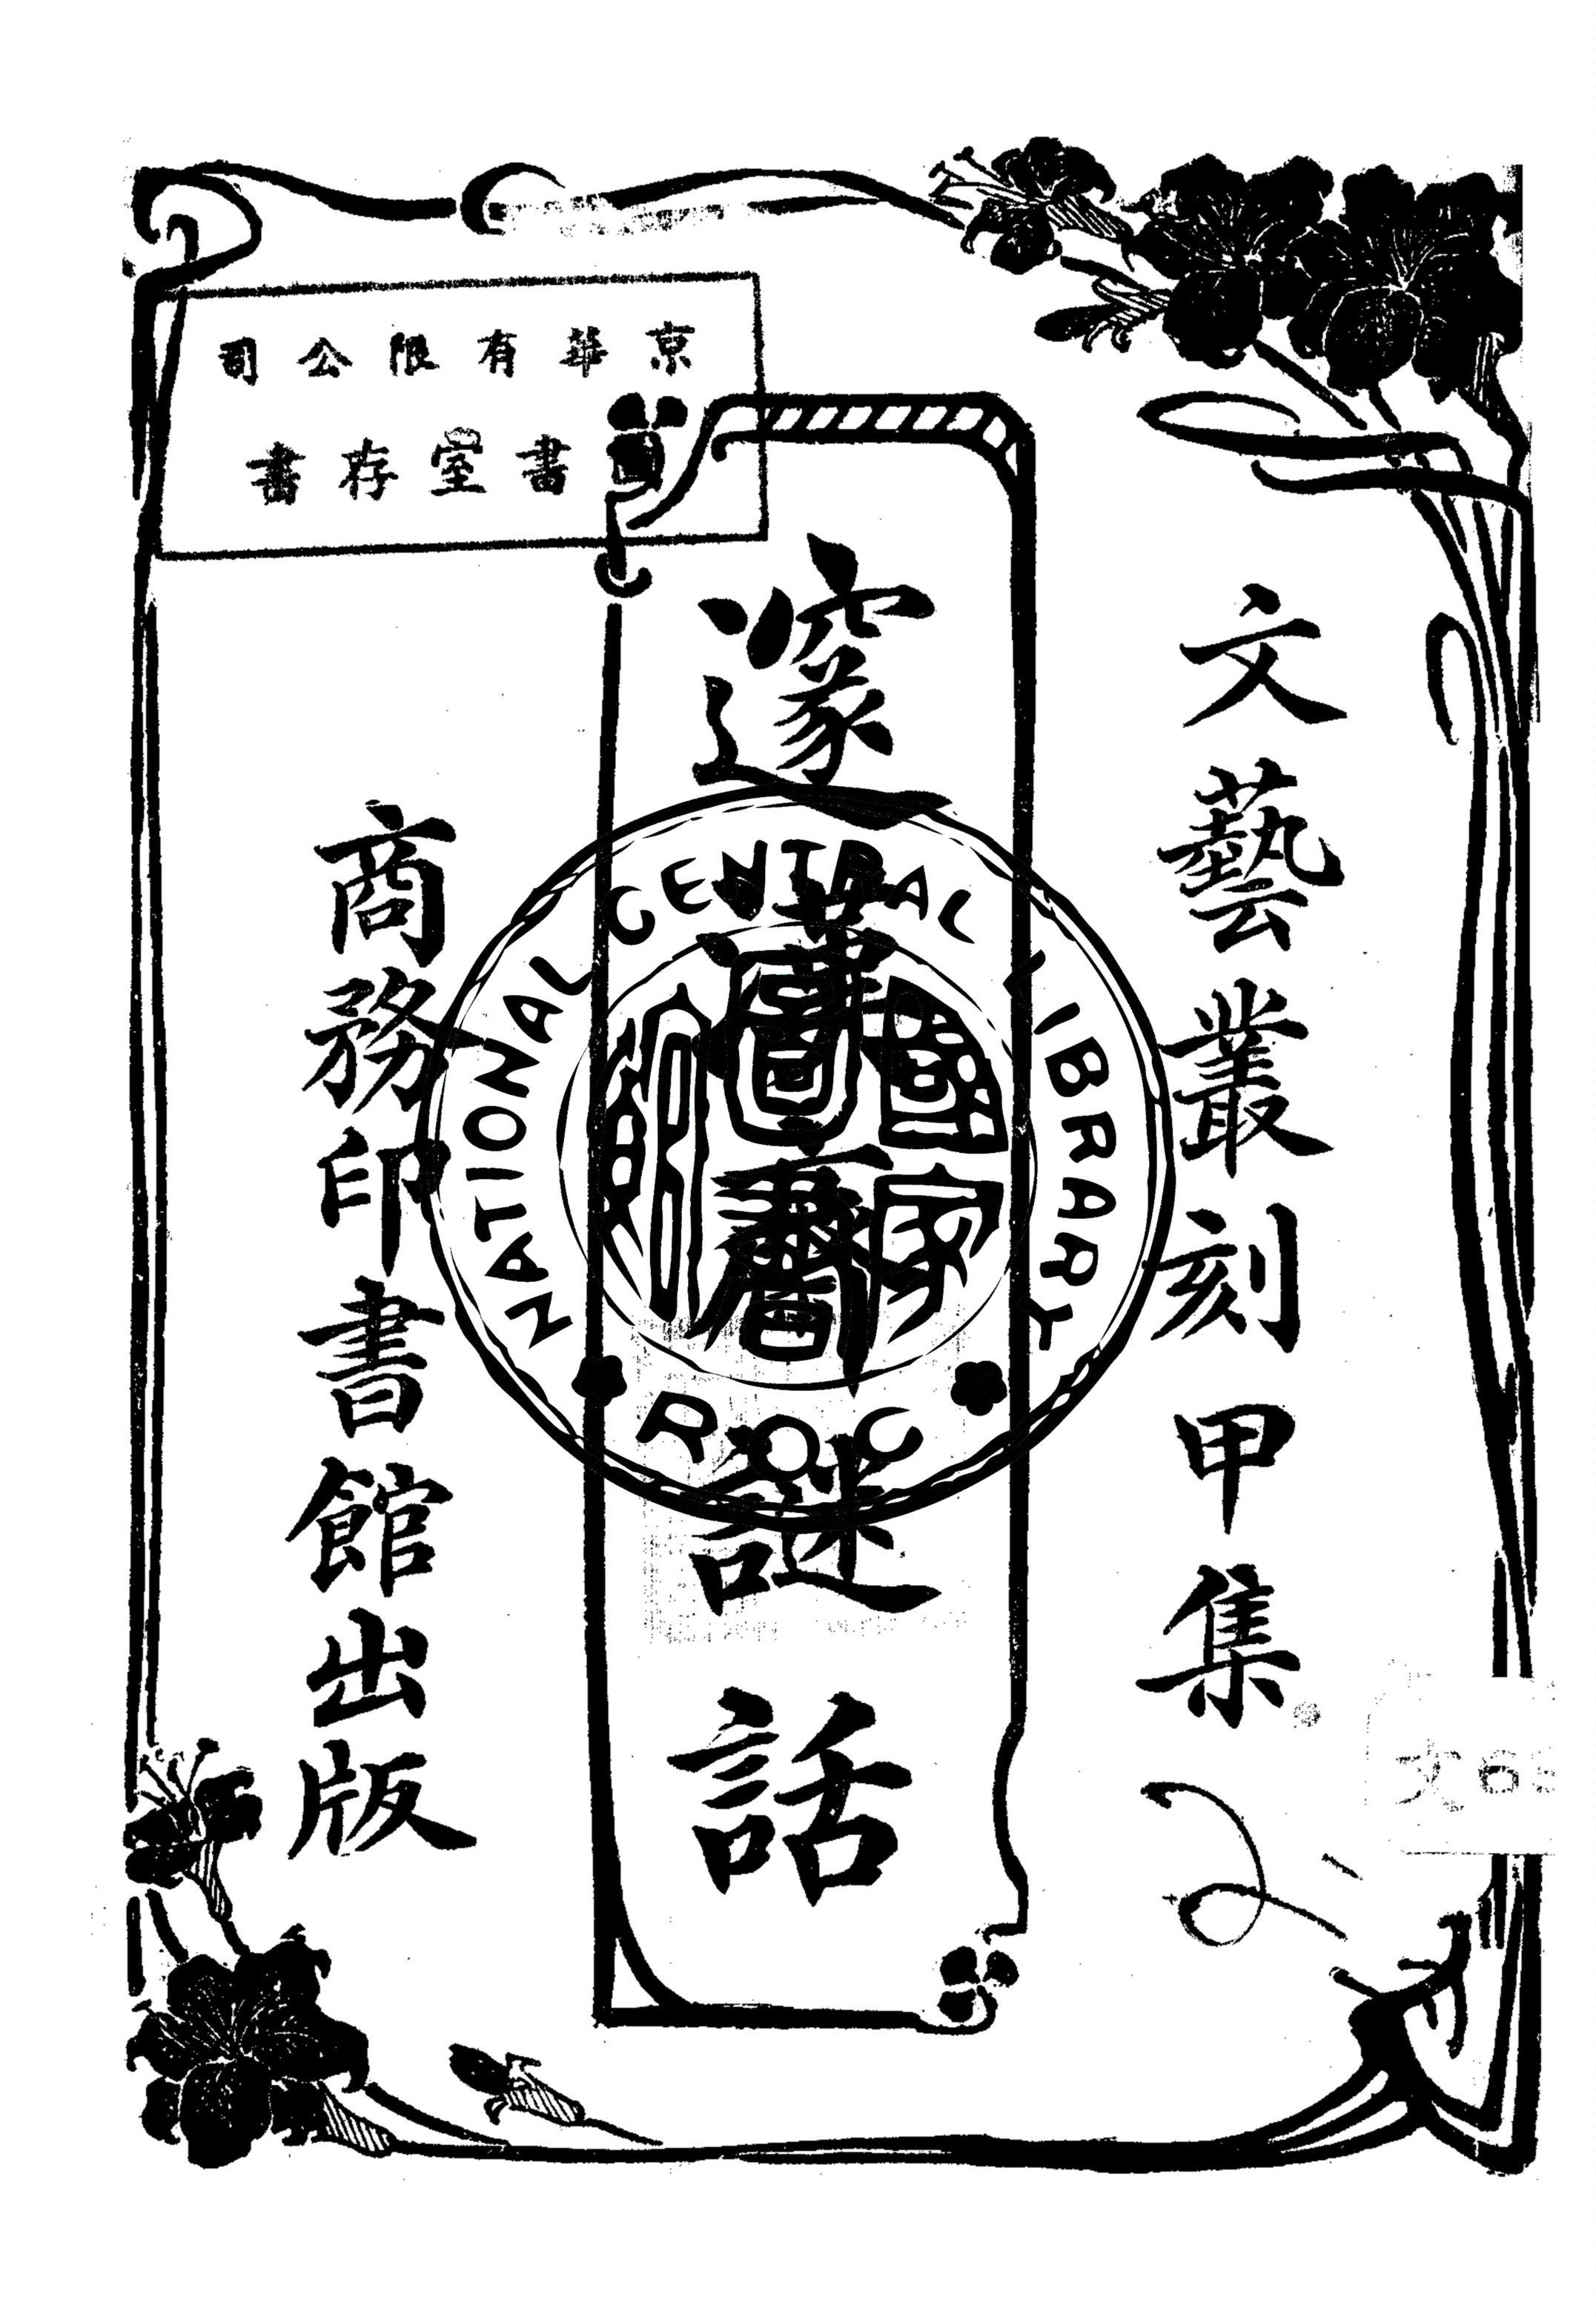 文藝叢刻甲集
邃漢齋謎話
商務印書館出版
京華有限公司
圖書室存書
NATIONAL CENTRAL LIBRARY
國家圖書館
R.O.C